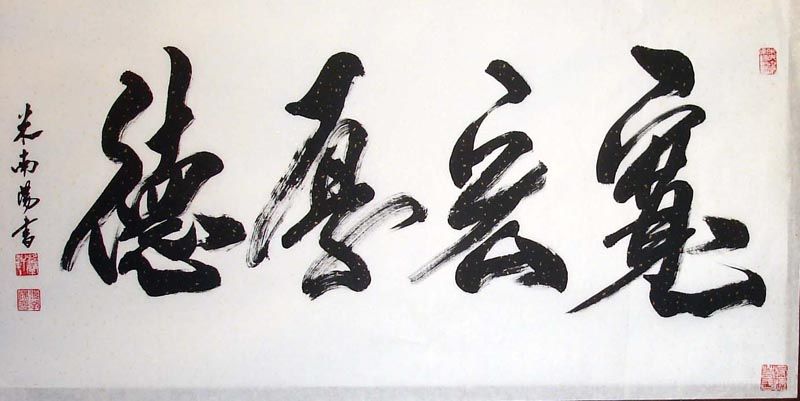 寬宏厚德
米南陽書